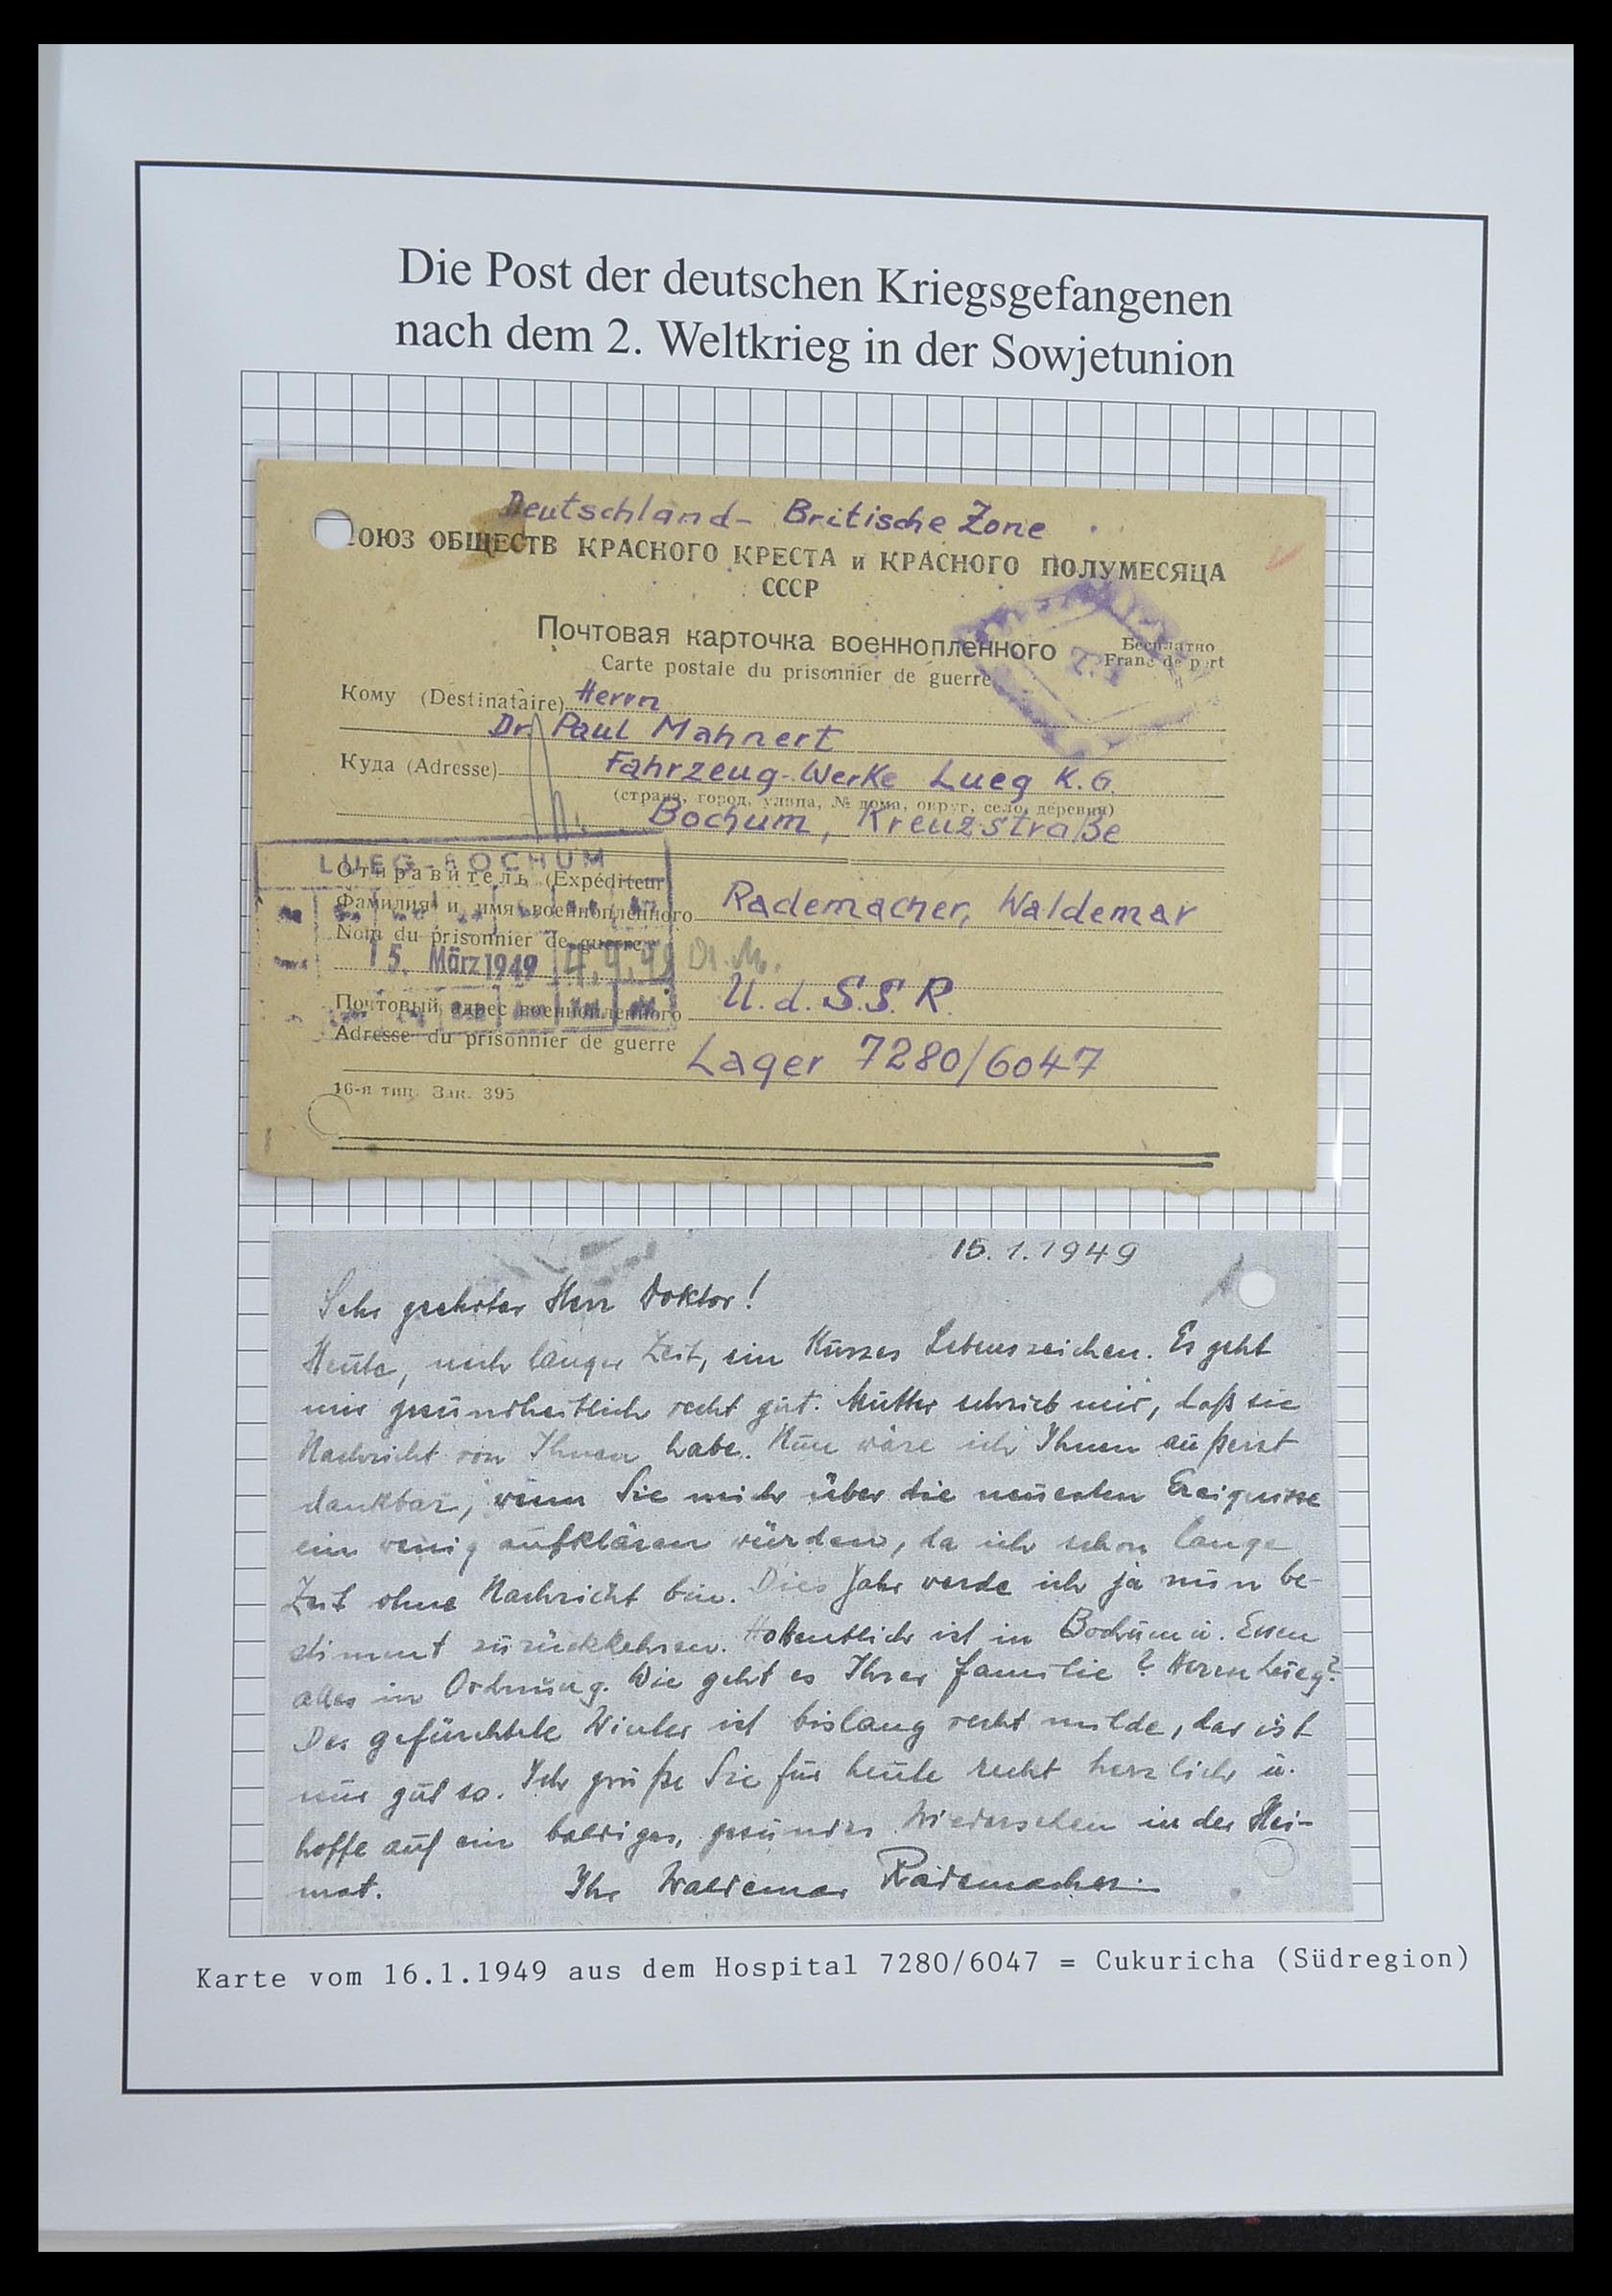 Die Post der deutschen Kriegsgefangenen
nach dem 2. Weltkrieg in der Sowjetunion
Deutschland- Britische Zone
СОЮЗ ОБЩЕСТВ КРАСНОГО КРЕСТА и КРАСНОГО ПОЛУМЕСЯЦА
СССР
Почтовая карточка военнопленного
Бесплатно
Carte postale du prisonnier de guerre
Franc de port
Кому (Destinataire) Herrn
Dr. Paul Mahnert
Куда (Adresse) Fahrzeug-Werke Lueg K.G.
(страна, город, улица, № дома, округ, село, деревня)
Bochum, Kreuzstraße
LUEG-BOCHUM
Отправитель (Expéditeur)
Фамилия и имя военнопленного Rademacher, Waldemar
Nom du prisonnier de guerre
15. März 1949 4.4.49 Dr. M.
Почтовый адрес военнопленного U.d.S.S.R.
Adresse du prisonnier de guerre
Lager 7280/6047
16-я тип. Зак. 395
15.1.1949
Sehr geehrter Herr Doktor!
Heute, nach langer Zeit, ein kurzes Lebenszeichen. Es geht
mir gesundheitlich recht gut. Mutter schrieb mir, daß sie
Nachricht von Ihnen habe. Nun wäre ich Ihnen äußerst
dankbar, wenn Sie mich über die neuesten Ereignisse
ein wenig aufklären würden, da ich schon lange
Zeit ohne Nachricht bin. Dies Jahr werde ich ja nun be-
stimmt zurückkehren. Hoffentlich ist in Bochum u. Essen
alles in Ordnung. Wie geht es Ihrer Familie? Herrn Lueg?
Der gefürchtete Winter ist bislang recht milde, das ist
nur gut so. Ich grüße Sie für heute recht herzlich u.
hoffe auf ein baldiges, gesundes Wiedersehen in der Hei-
mat. Ihr Waldemar Rademacher.
Karte vom 16.1.1949 aus dem Hospital 7280/6047 = Cukuricha (Südregion)